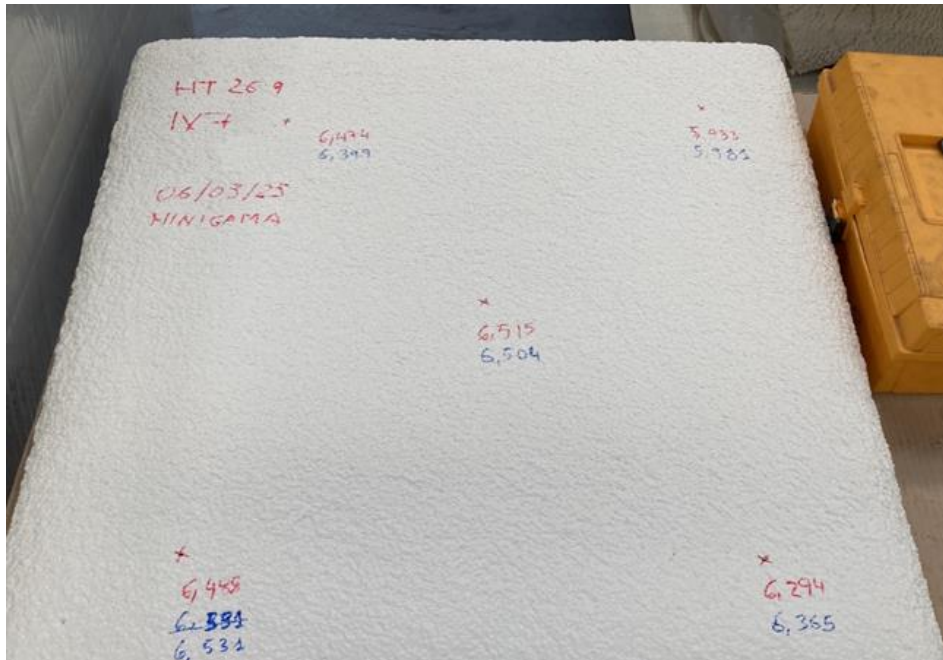 HT 26 9
IV7
6,474
6,399
5,933
5,981
06/03/23
MINIGAMA
6,515
6,504
6,448
6,531
6,531
6,294
6,365